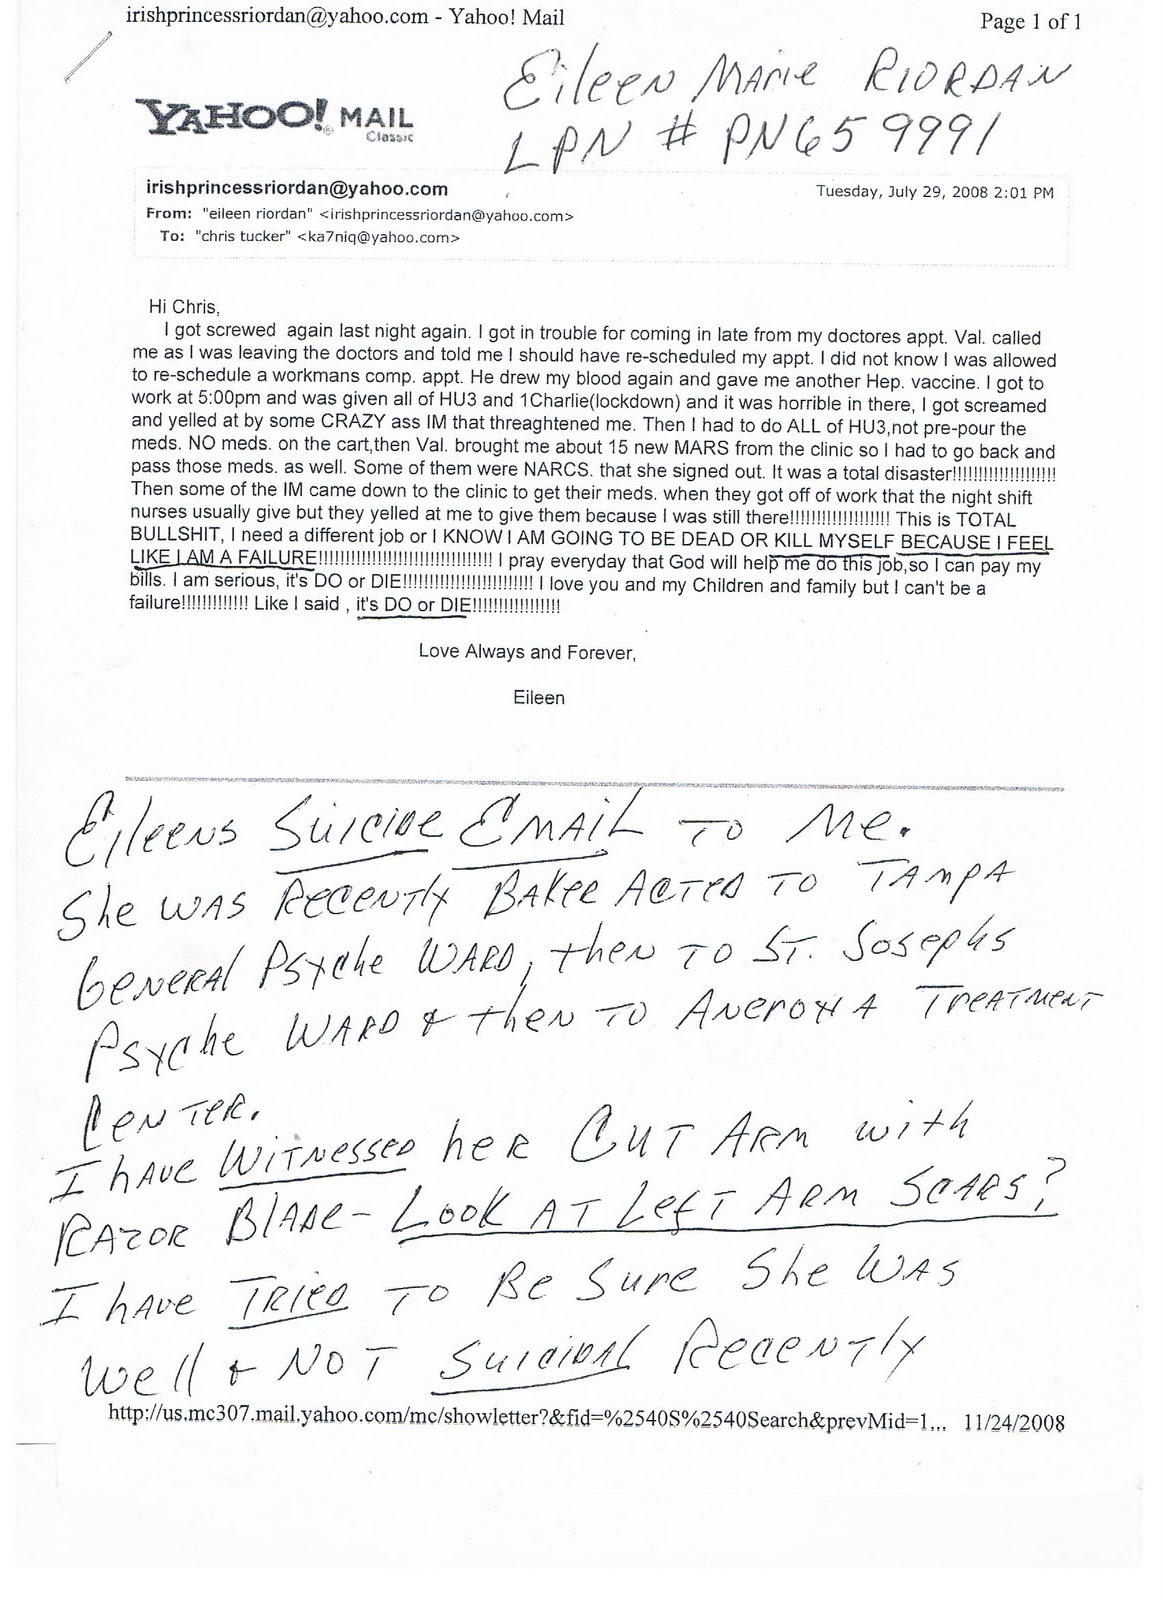 irishprincessriordan@yahoo.com - Yahoo! Mail
Page 1 of 1
Eileen Marie RIORDAN
LPN # PN659991
YAHOO! MAIL
Classic
irishprincessriordan@yahoo.com
Tuesday, July 29, 2008 2:01 PM
From: "eileen riordan" <irishprincessriordan@yahoo.com>
To: "chris tucker" <ka7niq@yahoo.com>
Hi Chris,
I got screwed again last night again. I got in trouble for coming in late from my doctores appt. Val. called
me as I was leaving the doctors and told me I should have re-scheduled my appt. I did not know I was allowed
to re-schedule a workmans comp. appt. He drew my blood again and gave me another Hep. vaccine. I got to
work at 5:00pm and was given all of HU3 and 1Charlie(lockdown) and it was horrible in there, I got screamed
and yelled at by some CRAZY ass IM that threaghtened me. Then I had to do ALL of HU3,not pre-pour the
meds. NO meds. on the cart,then Val. brought me about 15 new MARS from the clinic so I had to go back and
pass those meds. as well. Some of them were NARCS. that she signed out. It was a total disaster!!!!!!!!!!!!!!!!!!!!
Then some of the IM came down to the clinic to get their meds. when they got off of work that the night shift
nurses usually give but they yelled at me to give them because I was still there!!!!!!!!!!!!!!!!!!! This is TOTAL
BULLSHIT, I need a different job or I KNOW I AM GOING TO BE DEAD OR KILL MYSELF BECAUSE I FEEL
LIKE I AM A FAILURE!!!!!!!!!!!!!!!!!!!!!!!!!!!!!!!!!! I pray everyday that God will help me do this job,so I can pay my
bills. I am serious, it's DO or DIE!!!!!!!!!!!!!!!!!!!!!!!!! I love you and my Children and family but I can't be a
failure!!!!!!!!!!!!! Like I said , it's DO or DIE!!!!!!!!!!!!!!!!!
Love Always and Forever,
Eileen
Eileens Suicide EMAIL TO Me.
She WAS Recently BAKER ACTED TO TAMPA
General Psyche WARD, then TO ST. Josephs
Psyche WARD & then TO ANEROXIA Treatment
Center.
I hAve WITNESSED her CUT ARM with
RAZOR BLADE - LOOK AT Left ARM SCARS?
I have TRIED TO Be Sure She WAS
Well & NOT SUICIDAL Recently
http://us.mc307.mail.yahoo.com/mc/showletter?&fid=%2540S%2540Search&prevMid=1... 11/24/2008